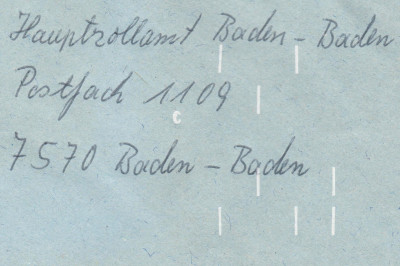 Hauptzollamt Baden - Baden
Postfach 1109
7570 Baden - Baden